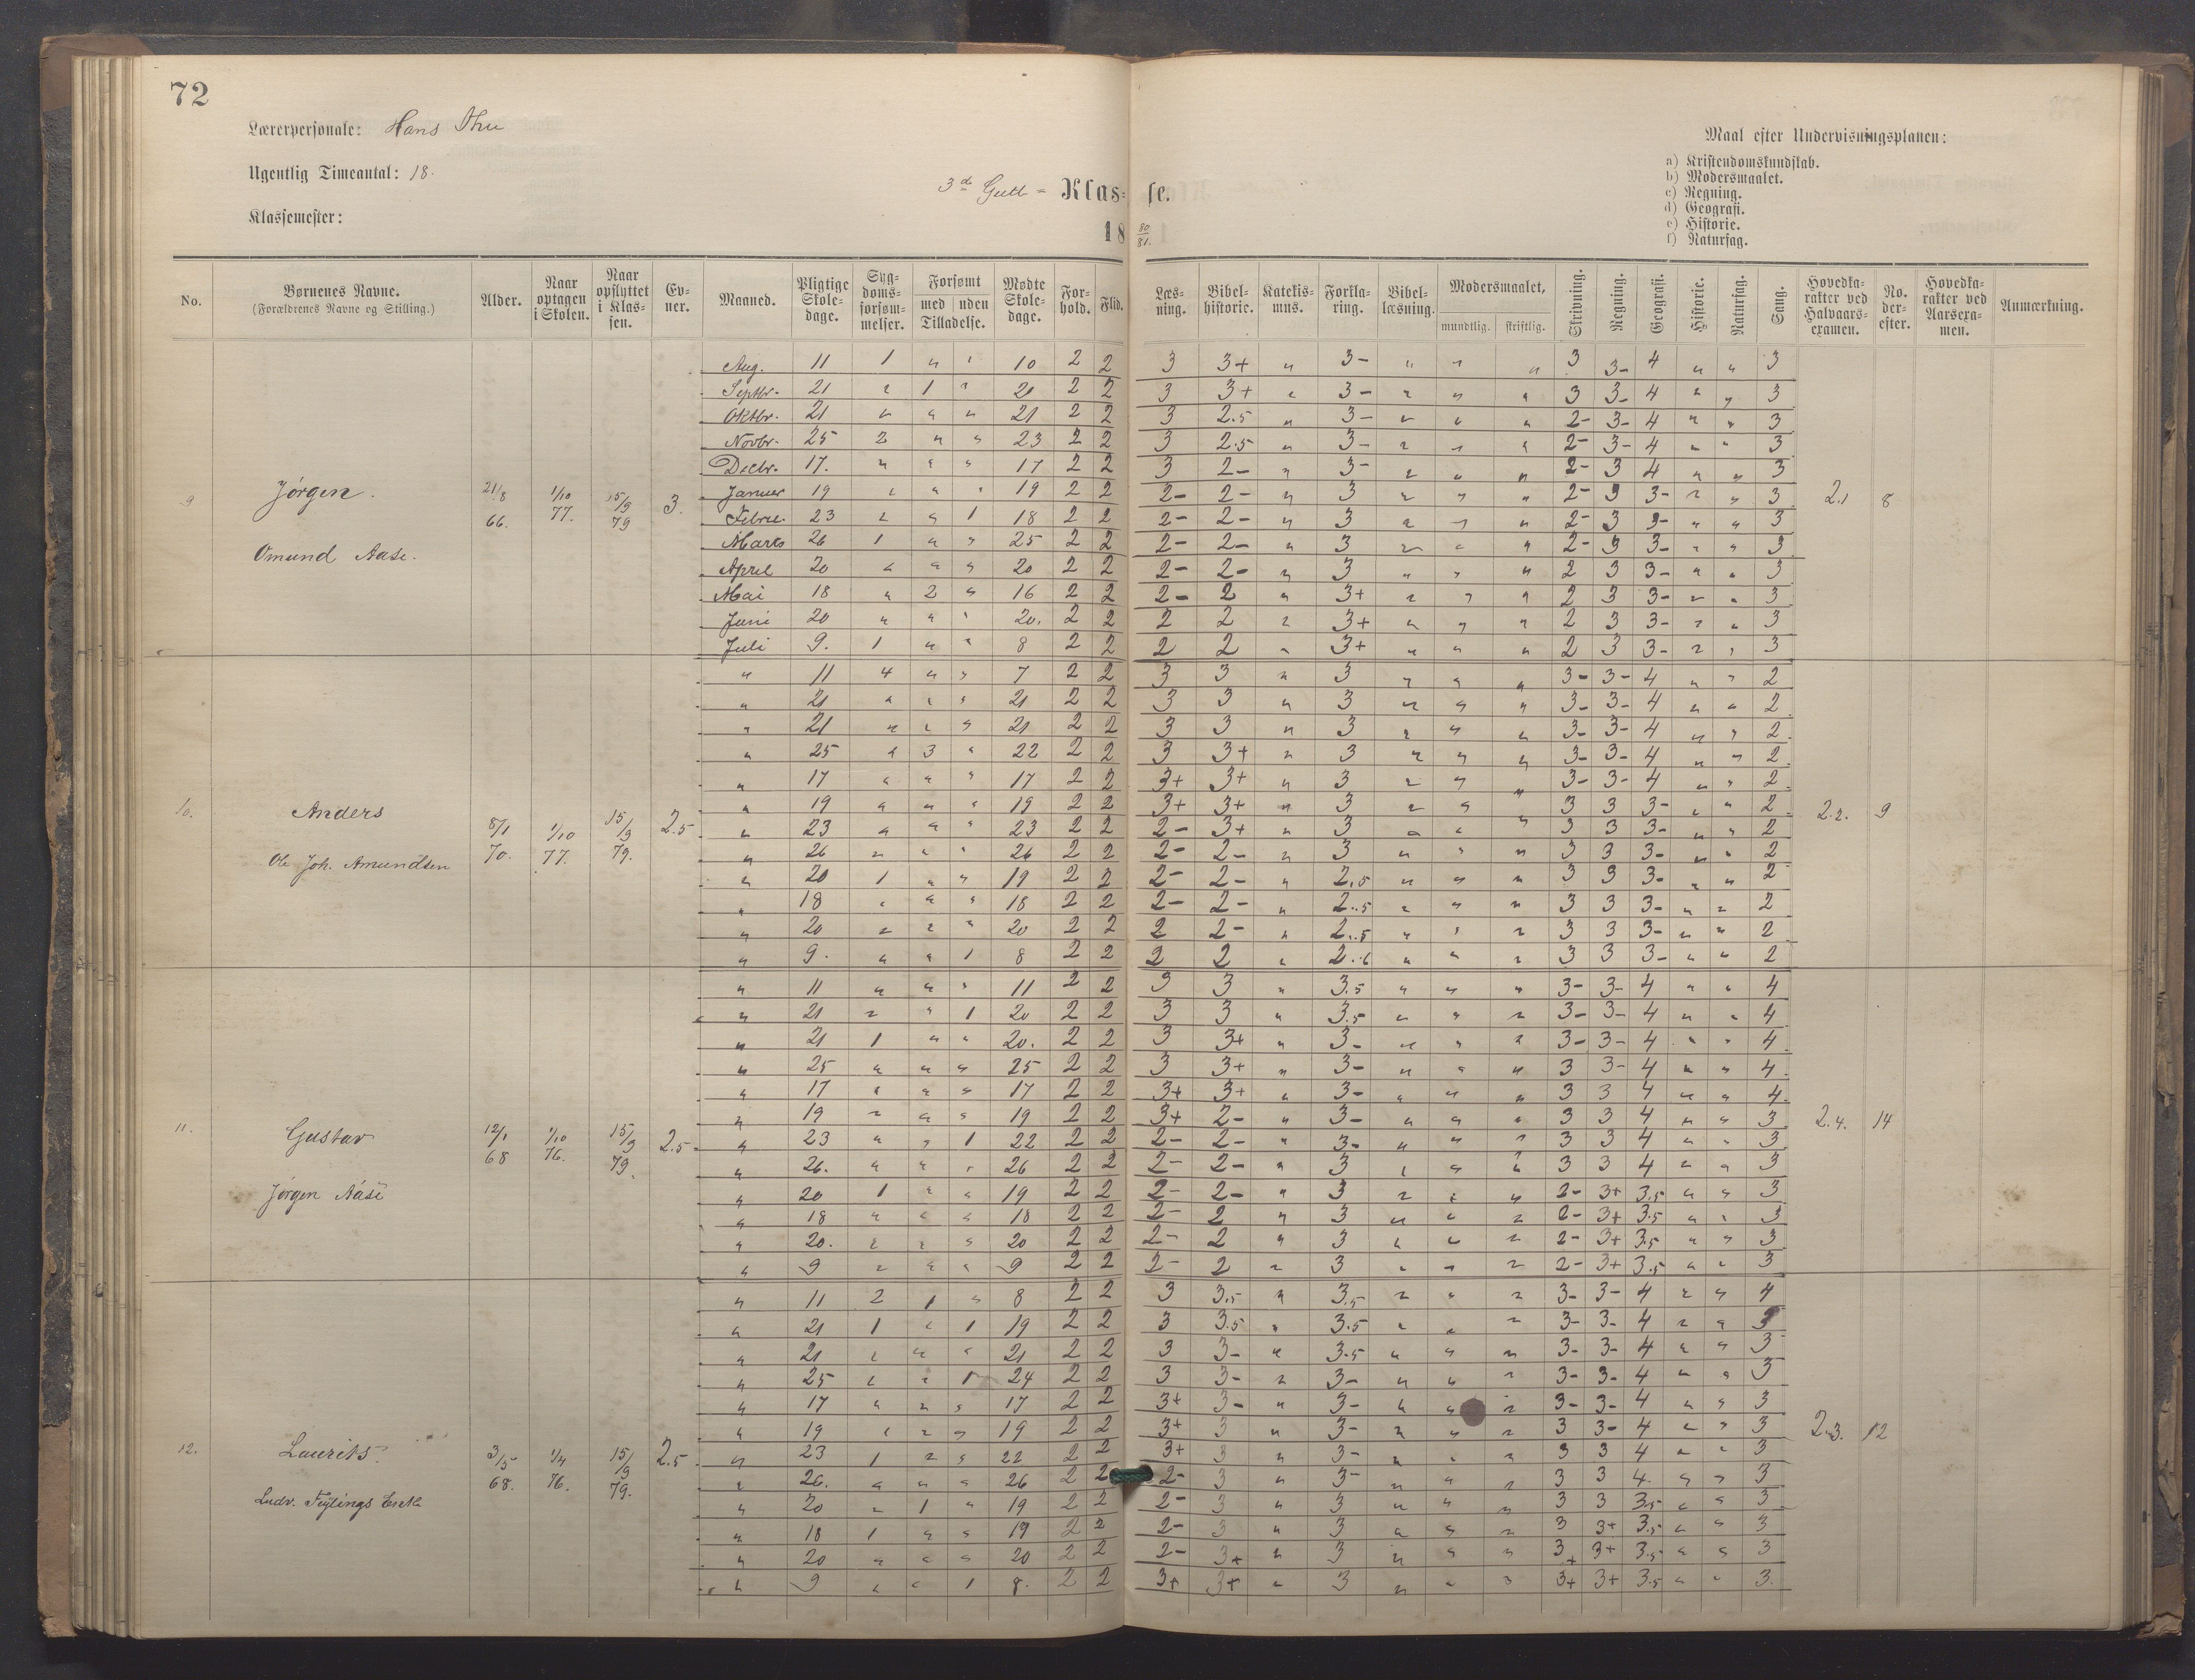 72
Lærerpersonale: Hans Thu
Ugentlig Timeantal: 18.
Klassemester:
3d Gutt - Klasse.
18 80/81.
Maal efter Undervisningsplanen:
a) Kristendomskundskab.
b) Modersmaalet.
c) Regning.
d) Geografi.
e) Historie.
f) Naturfag.
No. Børnenes Navne. (Forældrenes Navne og Stilling.) Alder. Naar optagen i Skolen. Naar opflyttet i Klassen. Evner. Maaned. Pligtige Skoledage. Sygdomsforsømmelser. Forsømt med uden Tilladelse. Mødte Skoledage. Forhold. Flid. Læsning. Bibelhistorie. Katekismus. Forklaring. Bibellæsning. Modersmaalet, mundtlig. skriftlig. Skrivning. Regning. Geografi. Historie. Naturfag. Sang. Hovedkarakter ved Halvaarsexamen. No. derefter. Hovedkarakter ved Aarsexamen. Anmærkning.
Aug. 11 1 " " 10 2 2 3 3+ " 3- " " " 3 3- 4 " " 3
Septbr. 21 " 1 " 20 2 2 3 3+ " 3- " " " 3 3- 4 " " 3
Oktbr. 21 " " " 21 2 2 3 2.5 " 3- " " " 2- 3- 4 " " 3
Novbr. 25 2 " " 23 2 2 3 2.5 " 3- " " " 2- 3- 4 " " 3
Decbr. 17. " " " 17 2 2 3 2- " 3- " " " 2- 3 4 " " 3
9 Jørgen. 21/8 66. 1/10 77. 15/9 79 3. Januar 19 " " " 19 2 2 2- 2- " 3 " " " 2- 3 3- " " 3 2.1 8
Februr. 23 " " 1 18 2 2 2- 2- " 3 " " " 2- 3 3- " " 3
Omund Aase. Marts 26 1 " " 25 2 2 2- 2- " 3 " " " 2- 3 3- " " 3
April 20 " " " 20 2 2 2- 2- " 3 " " " 2 3 3- " " 3
Mai 18 " 2 " 16 2 2 2- 2 " 3+ " " " 2 3 3- " " 3
Juni 20 " " " 20. 2 2 2 2 " 3+ " " " 2 3 3- " " 3
Juli 9. 1 " " 8 2 2 2 2 " 3+ " " " 2 3 3- " " 3
" 11 4 " " 7 2 2 3 3 " 3 " " " 3- 3- 4 " " 2
" 21 " " " 21 2 2 3 3 " 3 " " " 3- 3- 4 " " 2
" 21 " " " 21 2 2 3 3 " 3 " " " 3- 3- 4 " " 2
" 25 " 3 " 22 2 2 3 3+ " 3 " " " 3- 3- 4 " " 2
" 17 " " " 17 2 2 3+ 3+ " 3 " " " 3- 3- 4 " " 2
10. Anders 8/1 70. 1/10 77. 15/9 79. 2.5 " 19 " " " 19 2 2 3+ 3+ " 3 " " " 3 3 3- " " 2 2.2. 9
" 23 " " " 23 2 2 2- 3+ " 3 " " " 3 3 3- " " 2
Ole Joh. Amundsen " 26 " " " 26 2 2 2- 2- " 3 " " " 3 3 3- " " 2
" 20 1 " " 19 2 2 2- 2- " 2.5 " " " 3 3 3- " " 2
" 18 " " " 18 2 2 2- 2- " 2.5 " " " 3 3 3- " " 2
" 20 " " " 20 2 2 2 2- " 2.5 " " " 3 3 3- " " 2
" 9. " " 1 8 2 2 2 2 " 2.6 " " " 3 3 3- " " 2
" 11 " " " 11 2 2 3 3 " 3.5 " " " 3- 3- 4 " " 4
" 21 " " 1 20 2 2 3 3 " 3.5 " " " 3- 3- 4 " " 4
" 21 1 " " 20. 2 2 3 3+ " 3- " " " 3- 3- 4 " " 4
" 25 " " " 25 2 2 3 3+ " 3- " " " 3 3- 4 " " 4
" 17 " " " 17 2 2 3+ 3+ " 3- " " " 3 3 4 " " 4
" 19 " " " 19 2 2 3+ 2- " 3- " " " 3 3 4 " " 3
11. Gustav 12/1 68 1/10 76. 15/9 79. 2.5 " 23 " " 1 22 2 2 2- 2- " 3- " " " 3 3 4 " " 3 2.4. 14
" 26. " " " 26 2 2 2- 2- " 3 " " " 3 3 4 " " 3
Jørgen Aase " 20 1 " " 19 2 2 2- 2- " 3 " " " 2- 3+ 3.5 " " 3
" 18 " " " 18 2 2 2- 2 " 3 " " " 2- 3+ 3.5 " " 3
" 20. " " " 20 2 2 2- 2 " 3 " " " 2- 3+ 3.5 " " 3
" 9 " " " 9 2 2 2- 2 " 3 " " " 2- 3+ 3.5 " " 3
" 11 2 1 " 8 2 2 3 3.5 " 3.5 " " " 3- 3- 4 " " 4
" 21 1 " 1 19 2 2 3 3.5 " 3.5 " " " 3- 3- 4 " " 3
" 21 " " " 21 2 2 3 3- " 3.5 " " " 3- 3- 4 " " 3
" 25 " " 1 24 2 2 3 3- " 3- " " " 3- 3- 4 " " 3
" 17 " " " 17 2 2 3+ 3- " 3- " " " 3- 3- 4 " " 3
" 19 " " " 19 2 2 3+ 3 " 3- " " " 3 3- 4 " " 3
12. Laurits. 3/5 68. 1/4 76. 15/9 79. 2.5 " 23 1 " " 22 2 2 3+ 3 " 3- " " " 3 3 4 " " 3 2.3. 12
" 26. " " " 26 2 2 2- 3 " 3- " " " 3 3 4. " " 3
Ludv. Feylings Enke " 20 " 1 " 19 2 2 2- 3 " 3 " " " 3 3 3.5 " " 3
" 18 1 " " 17 2 2 2- 3 " 3 " " " 3 3+ 3.5 " " 3
" 20 " " " 20 2 2 2- 3+ " 3 " " " 3+ 3+ 3.5 " " 3
" 9 " " 1 8. 2 2 3+ 3+ " 3 " " " 3+ 3+ 3.5 " " 3.